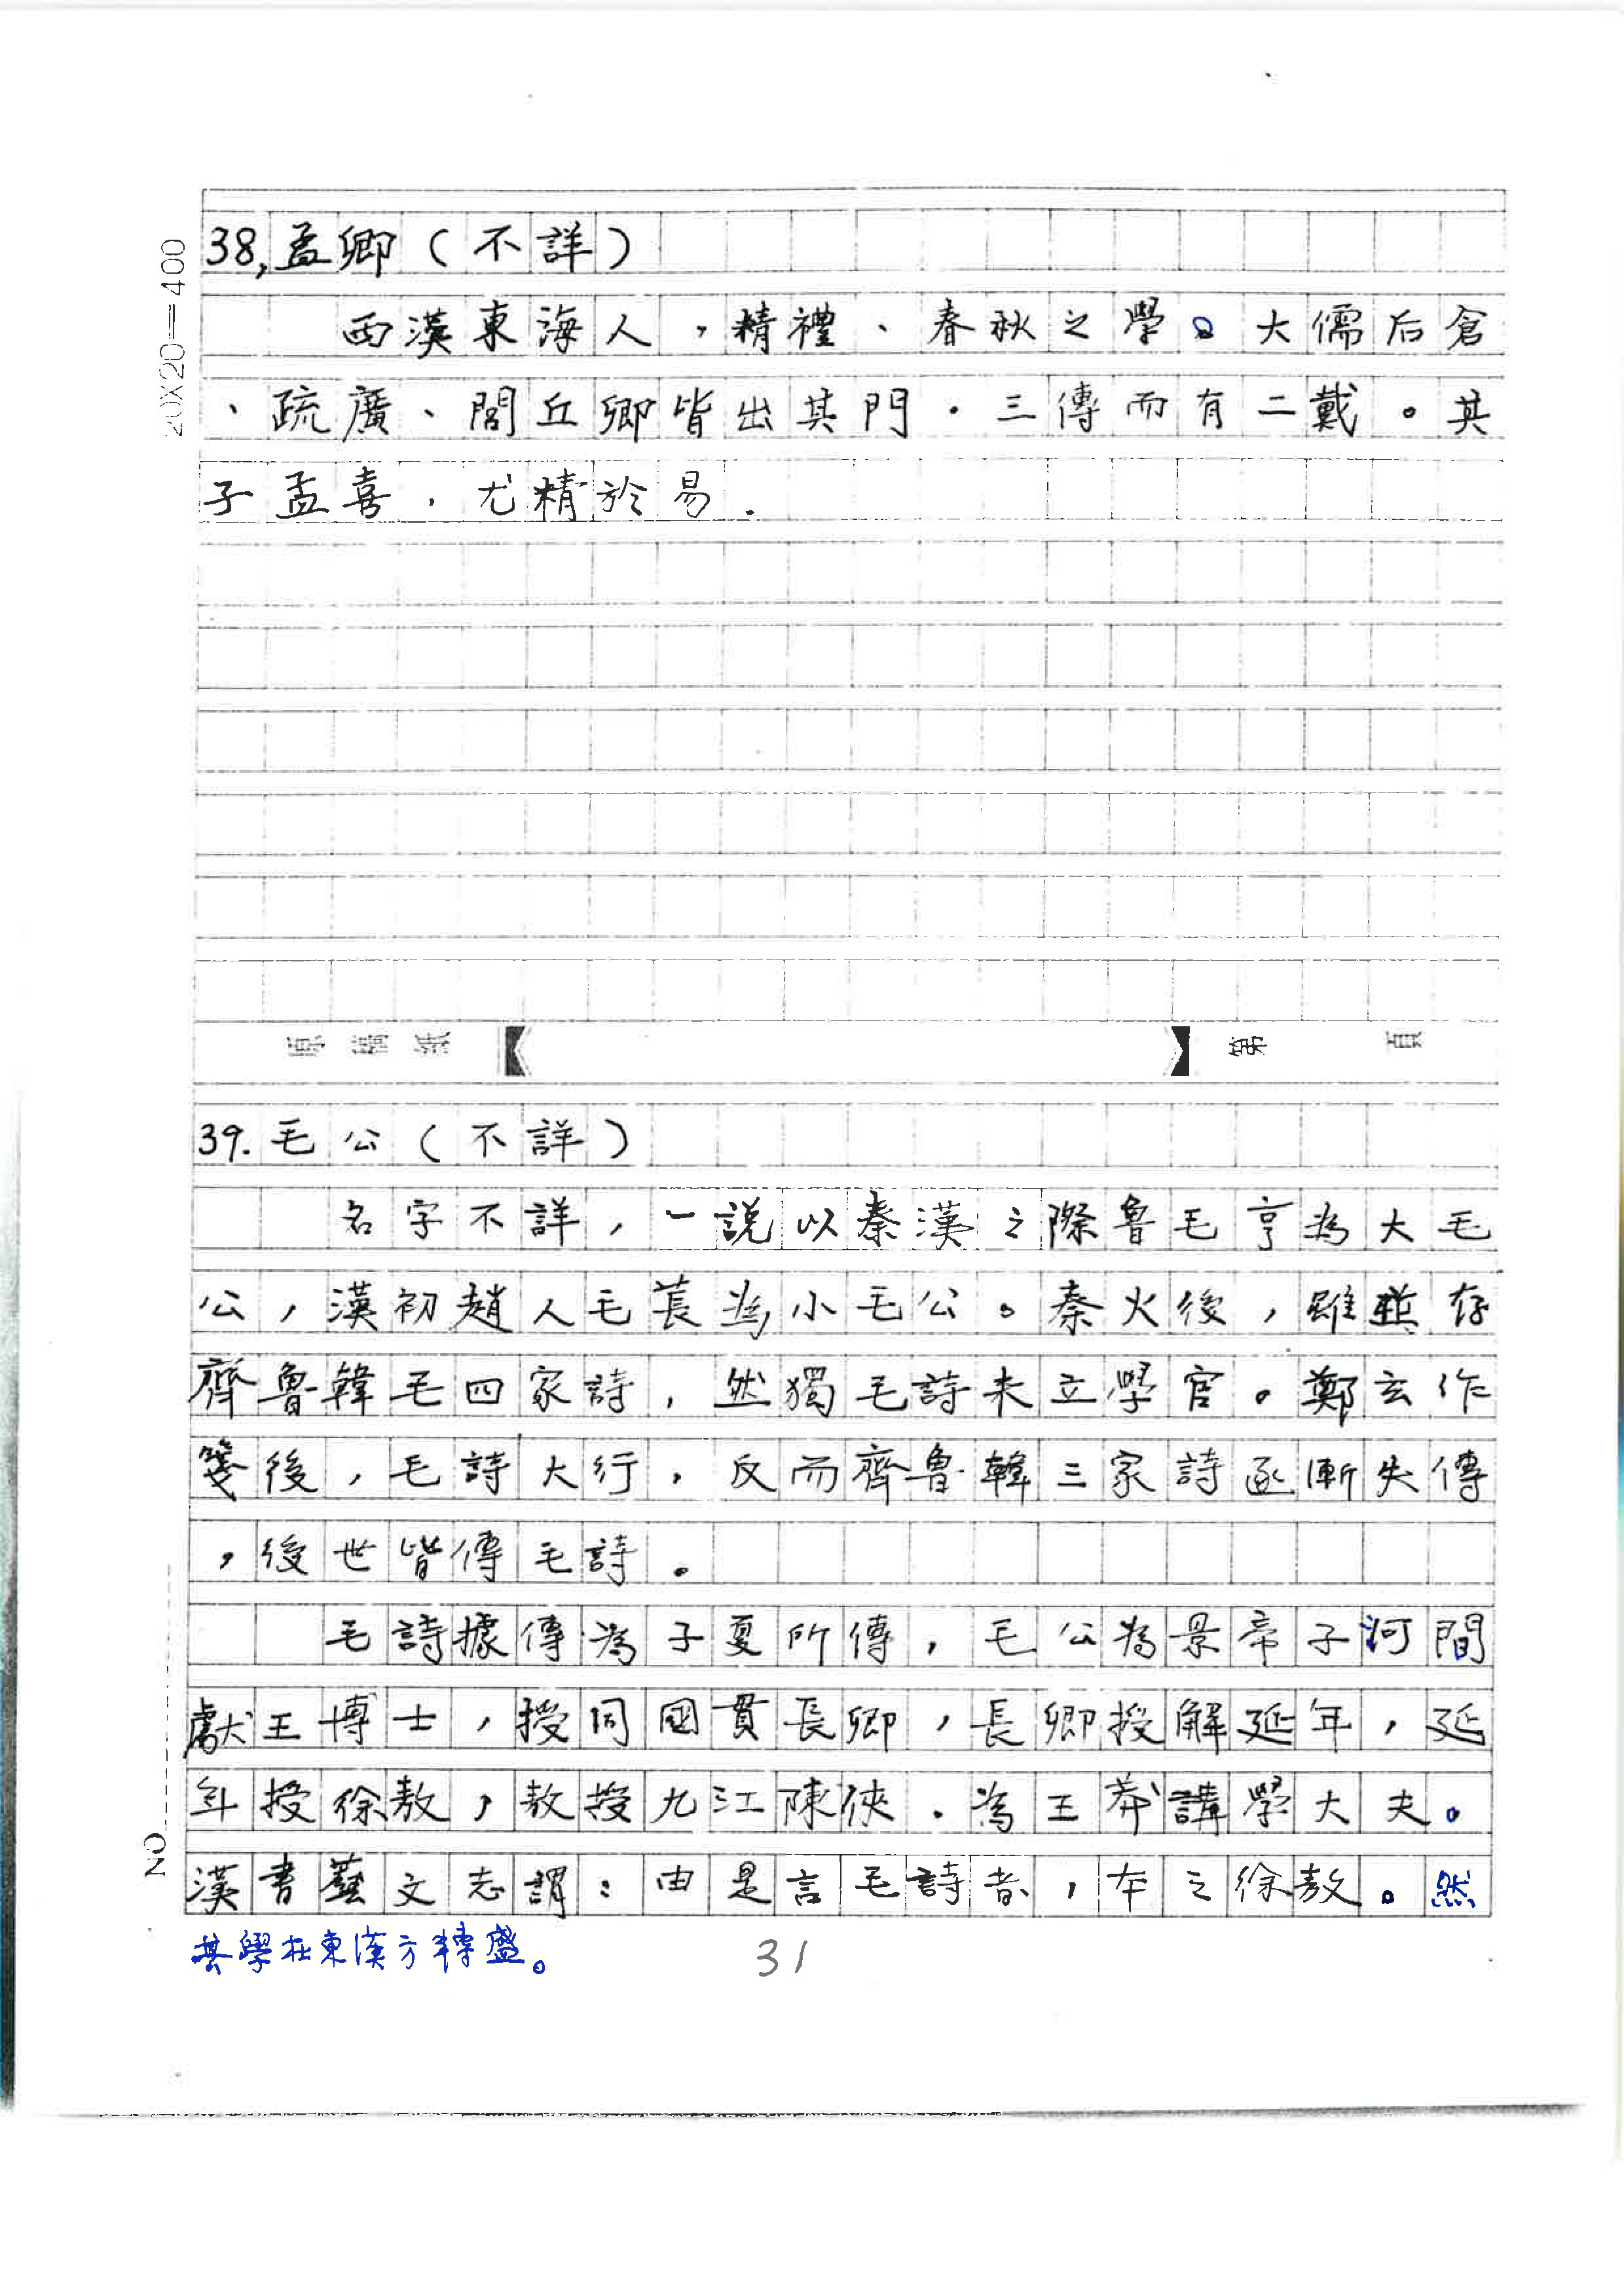 20X20=400
38.孟卿(不詳)
西漢東海人,精禮、春秋之學。大儒后倉
、疏廣、閭丘卿皆出其門.三傳而有二戴。其
子孟喜,尤精於易.
原稿紙 第 頁
39.毛公(不詳)
名字不詳,一說以秦漢之際魯毛亨為大毛
公,漢初趙人毛萇為小毛公。秦火後,雖並存
齊魯韓毛四家詩,然獨毛詩未立學官。鄭玄作
箋後,毛詩大行,反而齊魯韓三家詩逐漸失傳
,後世皆傳毛詩。
毛詩據傳為子夏所傳,毛公為景帝子河間
獻王博士,授同國貫長卿,長卿授解延年,延
年授徐敖,敖授九江陳俠.為王莽講學大夫。
漢書藝文志謂:由是言毛詩者,本之徐敖。然
其學在東漢方轉盛。
NO
31